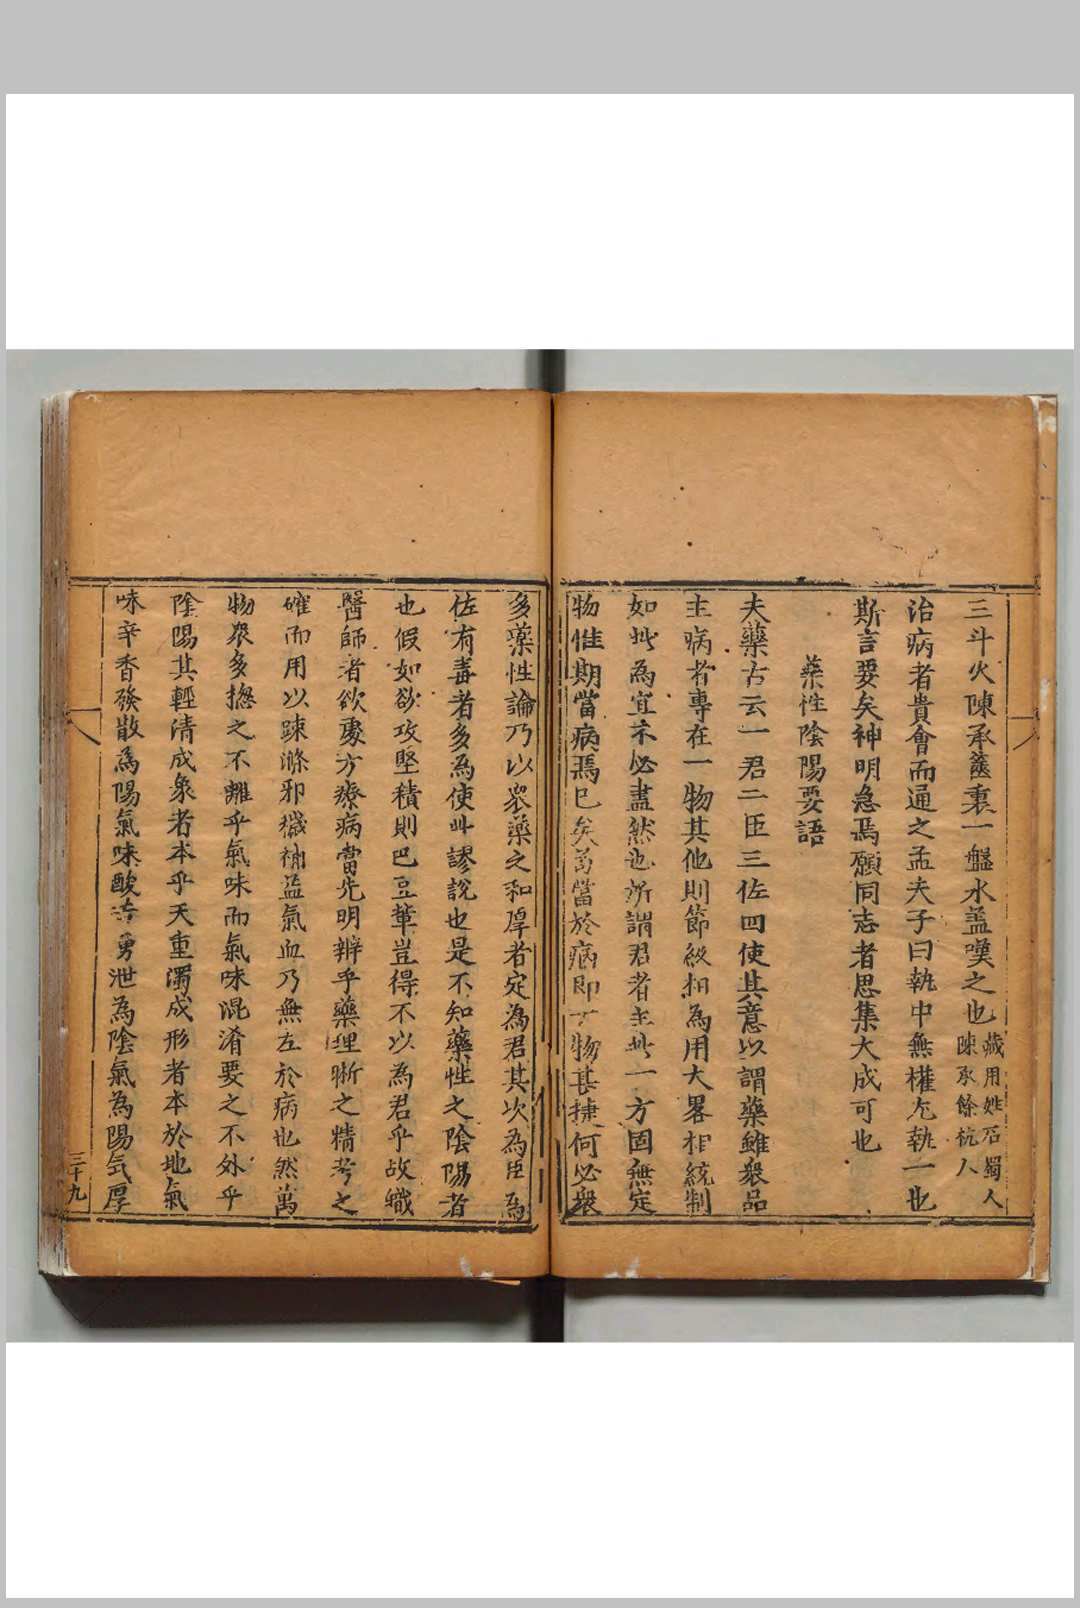 三斗火陳承篋裏一盤水盖嘆之也藏用姓石蜀人
陳承餘杭人
治病者貴會而通之孟夫子曰執中無權尤執一也
斯言要矣神明急焉願同志者思集大成可也
藥性陰陽要語
夫藥古云一君二臣三佐四使其意以謂藥雖衆品
主病者專在一物其他則節級相為用大畧相統制
如此為宜不必盡然也所謂君者主此一方固無定
物惟期當病焉已矣苟當於病即一物甚捷何必衆
多藥性論乃以衆藥之和厚者定為君其次為臣為
佐有毒者多為使此謬說也是不知藥性之陰陽者
也假如欲攻堅積則巴豆軰豈得不以為君乎故職
醫師者欲處方療病當先明辨乎藥理晰之精考之
確而用以疎滌邪穢補益氣血乃無左於病也然萬
物衆多揔之不離乎氣味而氣味混淆要之不外乎
陰陽其輕清成象者本乎天重濁成形者本於地氣
味辛香發散為陽氣味酸涌泄為陰氣為陽気厚
三十九